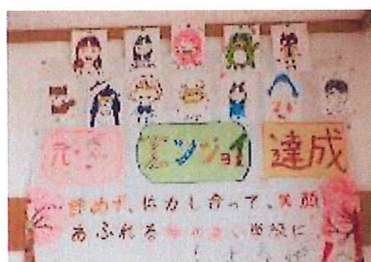 元気
エンジョイ
達成
諦めず、協力し合って、笑顔
あふれる 学級に